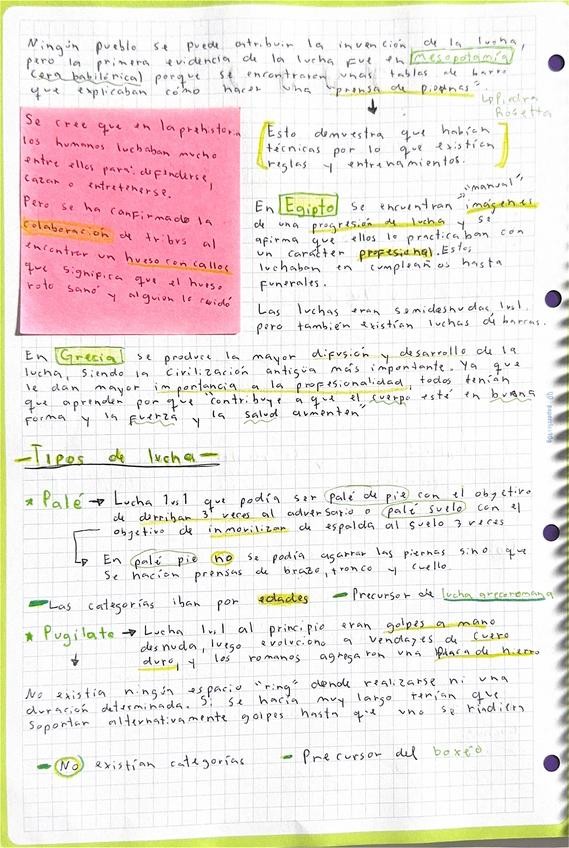 Ningún pueblo se puede atribuir la invención de la lucha,
pero la primera evidencia de la lucha fue en Mesopotamia
(era babilónica) porque se encontraron unas tablas de barro
que explicaban cómo hacer una "prensa de piernas".
↳Piedra
Rosetta
Se cree que en la prehistoria
los humanos luchaban mucho
entre ellos para defenderse,
cazar o entretenerse.
Pero se ha confirmado la
colaboración de tribus al
encontrar un hueso con callos
que significa que el hueso
roto sanó y alguien lo cuidó
[Esto demuestra que habían
técnicas por lo que existían
reglas y entrenamientos.]
"manual"
En Egipto se encuentran imágenes
de una progresión de lucha y se
afirma que ellos le practicaban con
un carácter profesional. Estos
luchaban en cumpleaños hasta
funerales.
Las luchas eran semidesnudas, 1vs1.
pero también existían luchas de barcas.
En Grecia se produce la mayor difusión y desarrollo de la
lucha, siendo la Civilización antigua más importante. Ya que
le dan mayor importancia a la profesionalidad, todos tenían
que aprender por que "contribuye a que el cuerpo esté en buena
forma y la fuerza y la salud aumenten"
-Tipos de lucha-
* Palé → Lucha 1vs1 que podía ser palé de pie con el objetivo
de derriban 3 veces al adversario o palé suelo con el
objetivo de inmovilizar de espalda al suelo 3 veces
↳ En palé pie no se podía agarrar las piernas sino que
se hacían prensas de brazo, tronco y cuello.
- Las categorías iban por edades - Precursor de lucha grecoromana
* Pugilato → Lucha 1vs1 al principio eran golpes a mano
desnuda, luego evoluciono a vendajes de cuero
duro, y los romanos agregaron una placa de hierro
No existía ningún espacio "ring" donde realizarse ni una
duración determinada. Si se hacía muy largo tenían que
soportar alternativamente golpes hasta que uno se rindiera
- No existían categorías - Precursor del boxeo